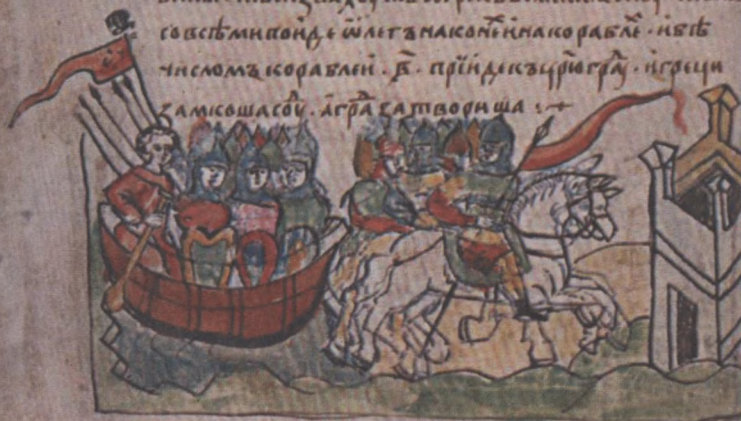 со всѣми поиде ѡлегъ на конеⷯ и на кораблеⷯ · и бѣ
числомъ кораблеи · в҃ · прїиде къ цр҃юграⷣ · и греци
замкоша соуⷣ · а граⷣ затвориша :+